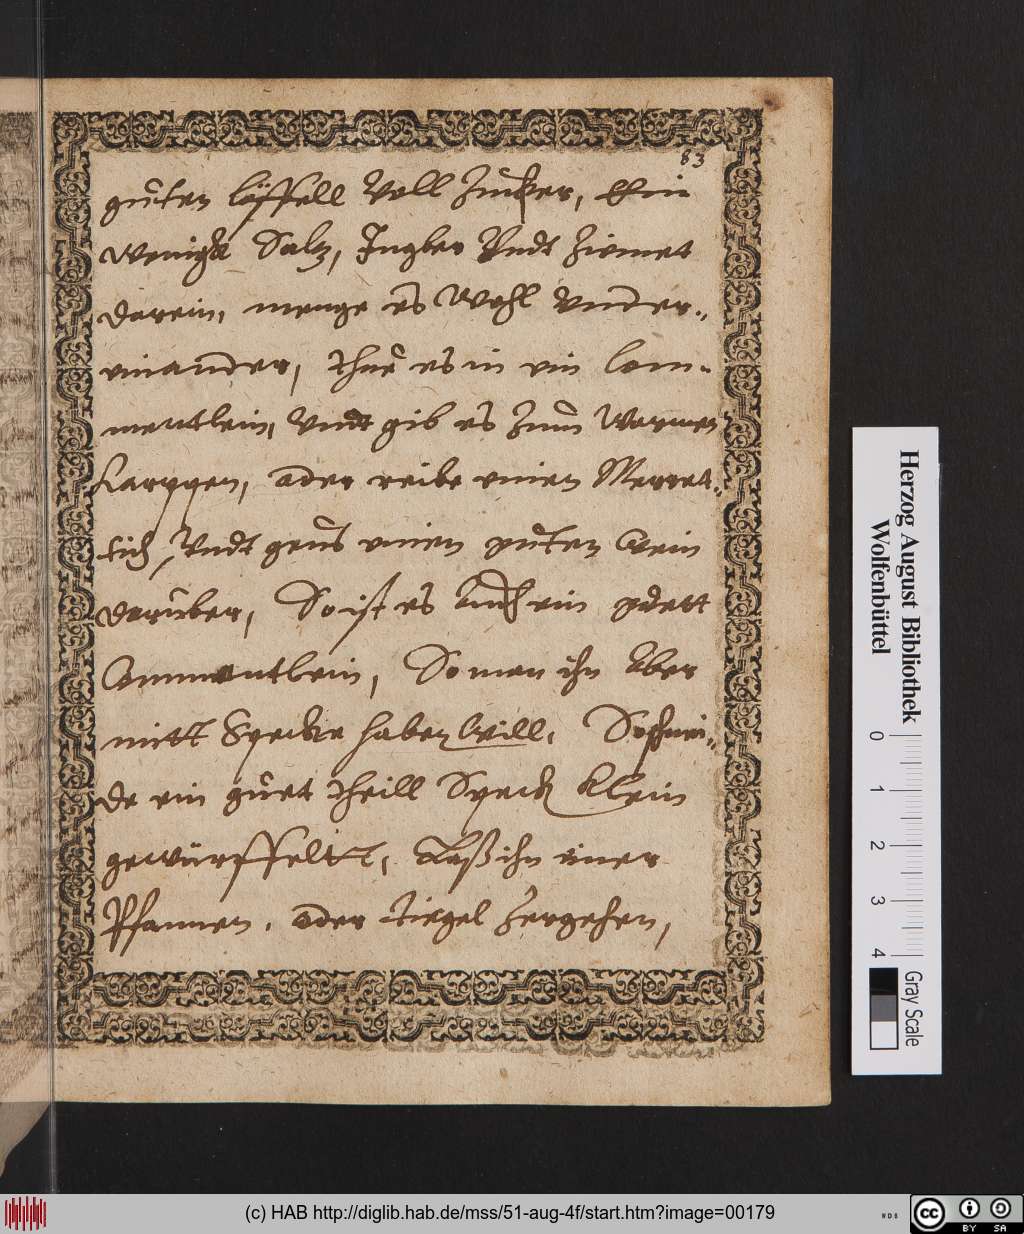 83
guten löffell Voll Zucker, Ein
wenigk Saltz, Ingber Vndt Zimet
darein, menge es Wohl Vnder-
einander, thue es in ein Com-
mentlein, Vndt gib es Zum Warmen
Karpgen, oder reibe einen Merret-
tich, Vndt geus einen guten Wein
darüber, So ist es Auch ein gdett
Commentlein, So man ihn Aber
mitt Specke haben will, So schnei-
de ein guet theill Speck Klein
gewürffeltt, Laß ihn einer
Pfannen, oder tiegel Zergehen,
Herzog August Bibliothek
Wolfenbüttel
0
1
2
3
4
Gray Scale
(c) HAB http://diglib.hab.de/mss/51-aug-4f/start.htm?image=00179
WDB
cc
BY SA